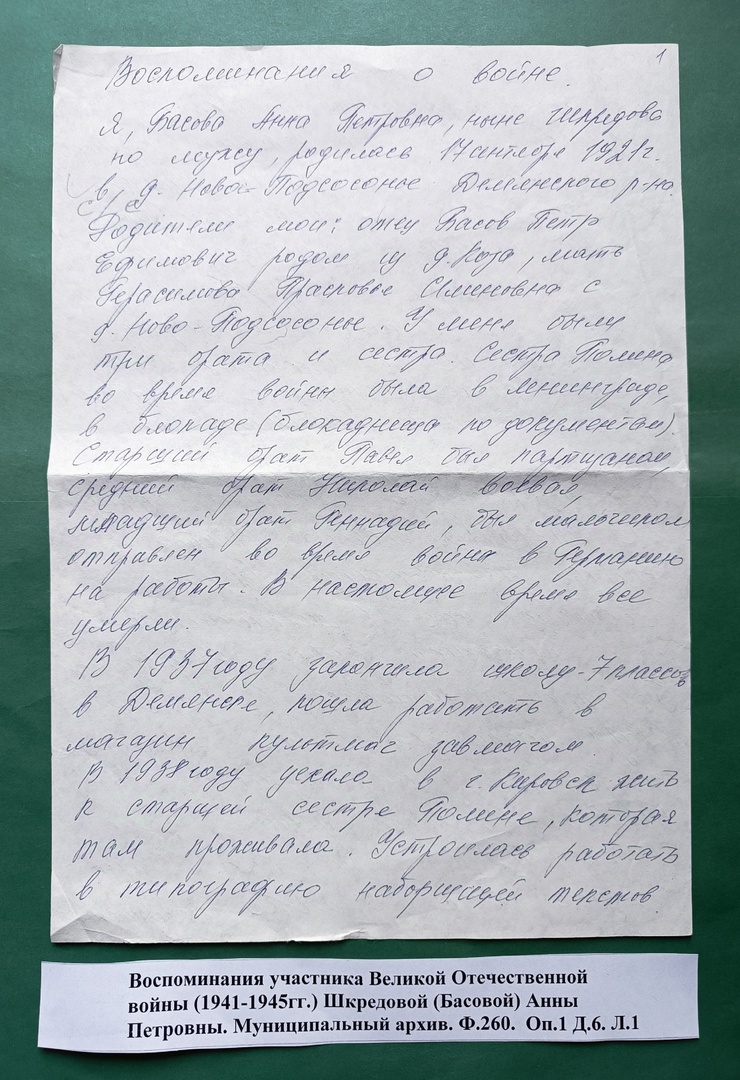 1
Воспоминания о войне.
Я, Басова Анна Петровна, ныне Шкредова
по мужу, родилась 17 сентября 1921 г.
в д. Ново-Подсосонье Демянского р-на.
Родители мои: отец Басов Петр
Ефимович родом из д. Коза, мать
Герасимова Прасковья с
д. Ново-Подсосонье. У меня были
три брата и сестра. Сестра Полина
во время войны была в Ленинграде,
в блокаде (блокадница по документам).
Старший брат Павел был партизаном,
средний брат Николай воевал,
младший брат Геннадий, был мальчиком
отправлен во время война в Германию
на работы. В настоящее время все
умерли.
В 1937 году закончила школу-7 классов
в Демянске, пошла работать в
магазин культмаг завмагом.
В 1938 году уехала в г. Кировск жить
к старшей сестре Полине, которая
там проживала. Устроилась работать
в типографию наборщицей текстов.
Воспоминания участника Великой Отечественной
войны (1941-1945гг.) Шкредовой (Басовой) Анны
Петровны. Муниципальный архив. Ф.260. Оп.1 Д.6. Л.1